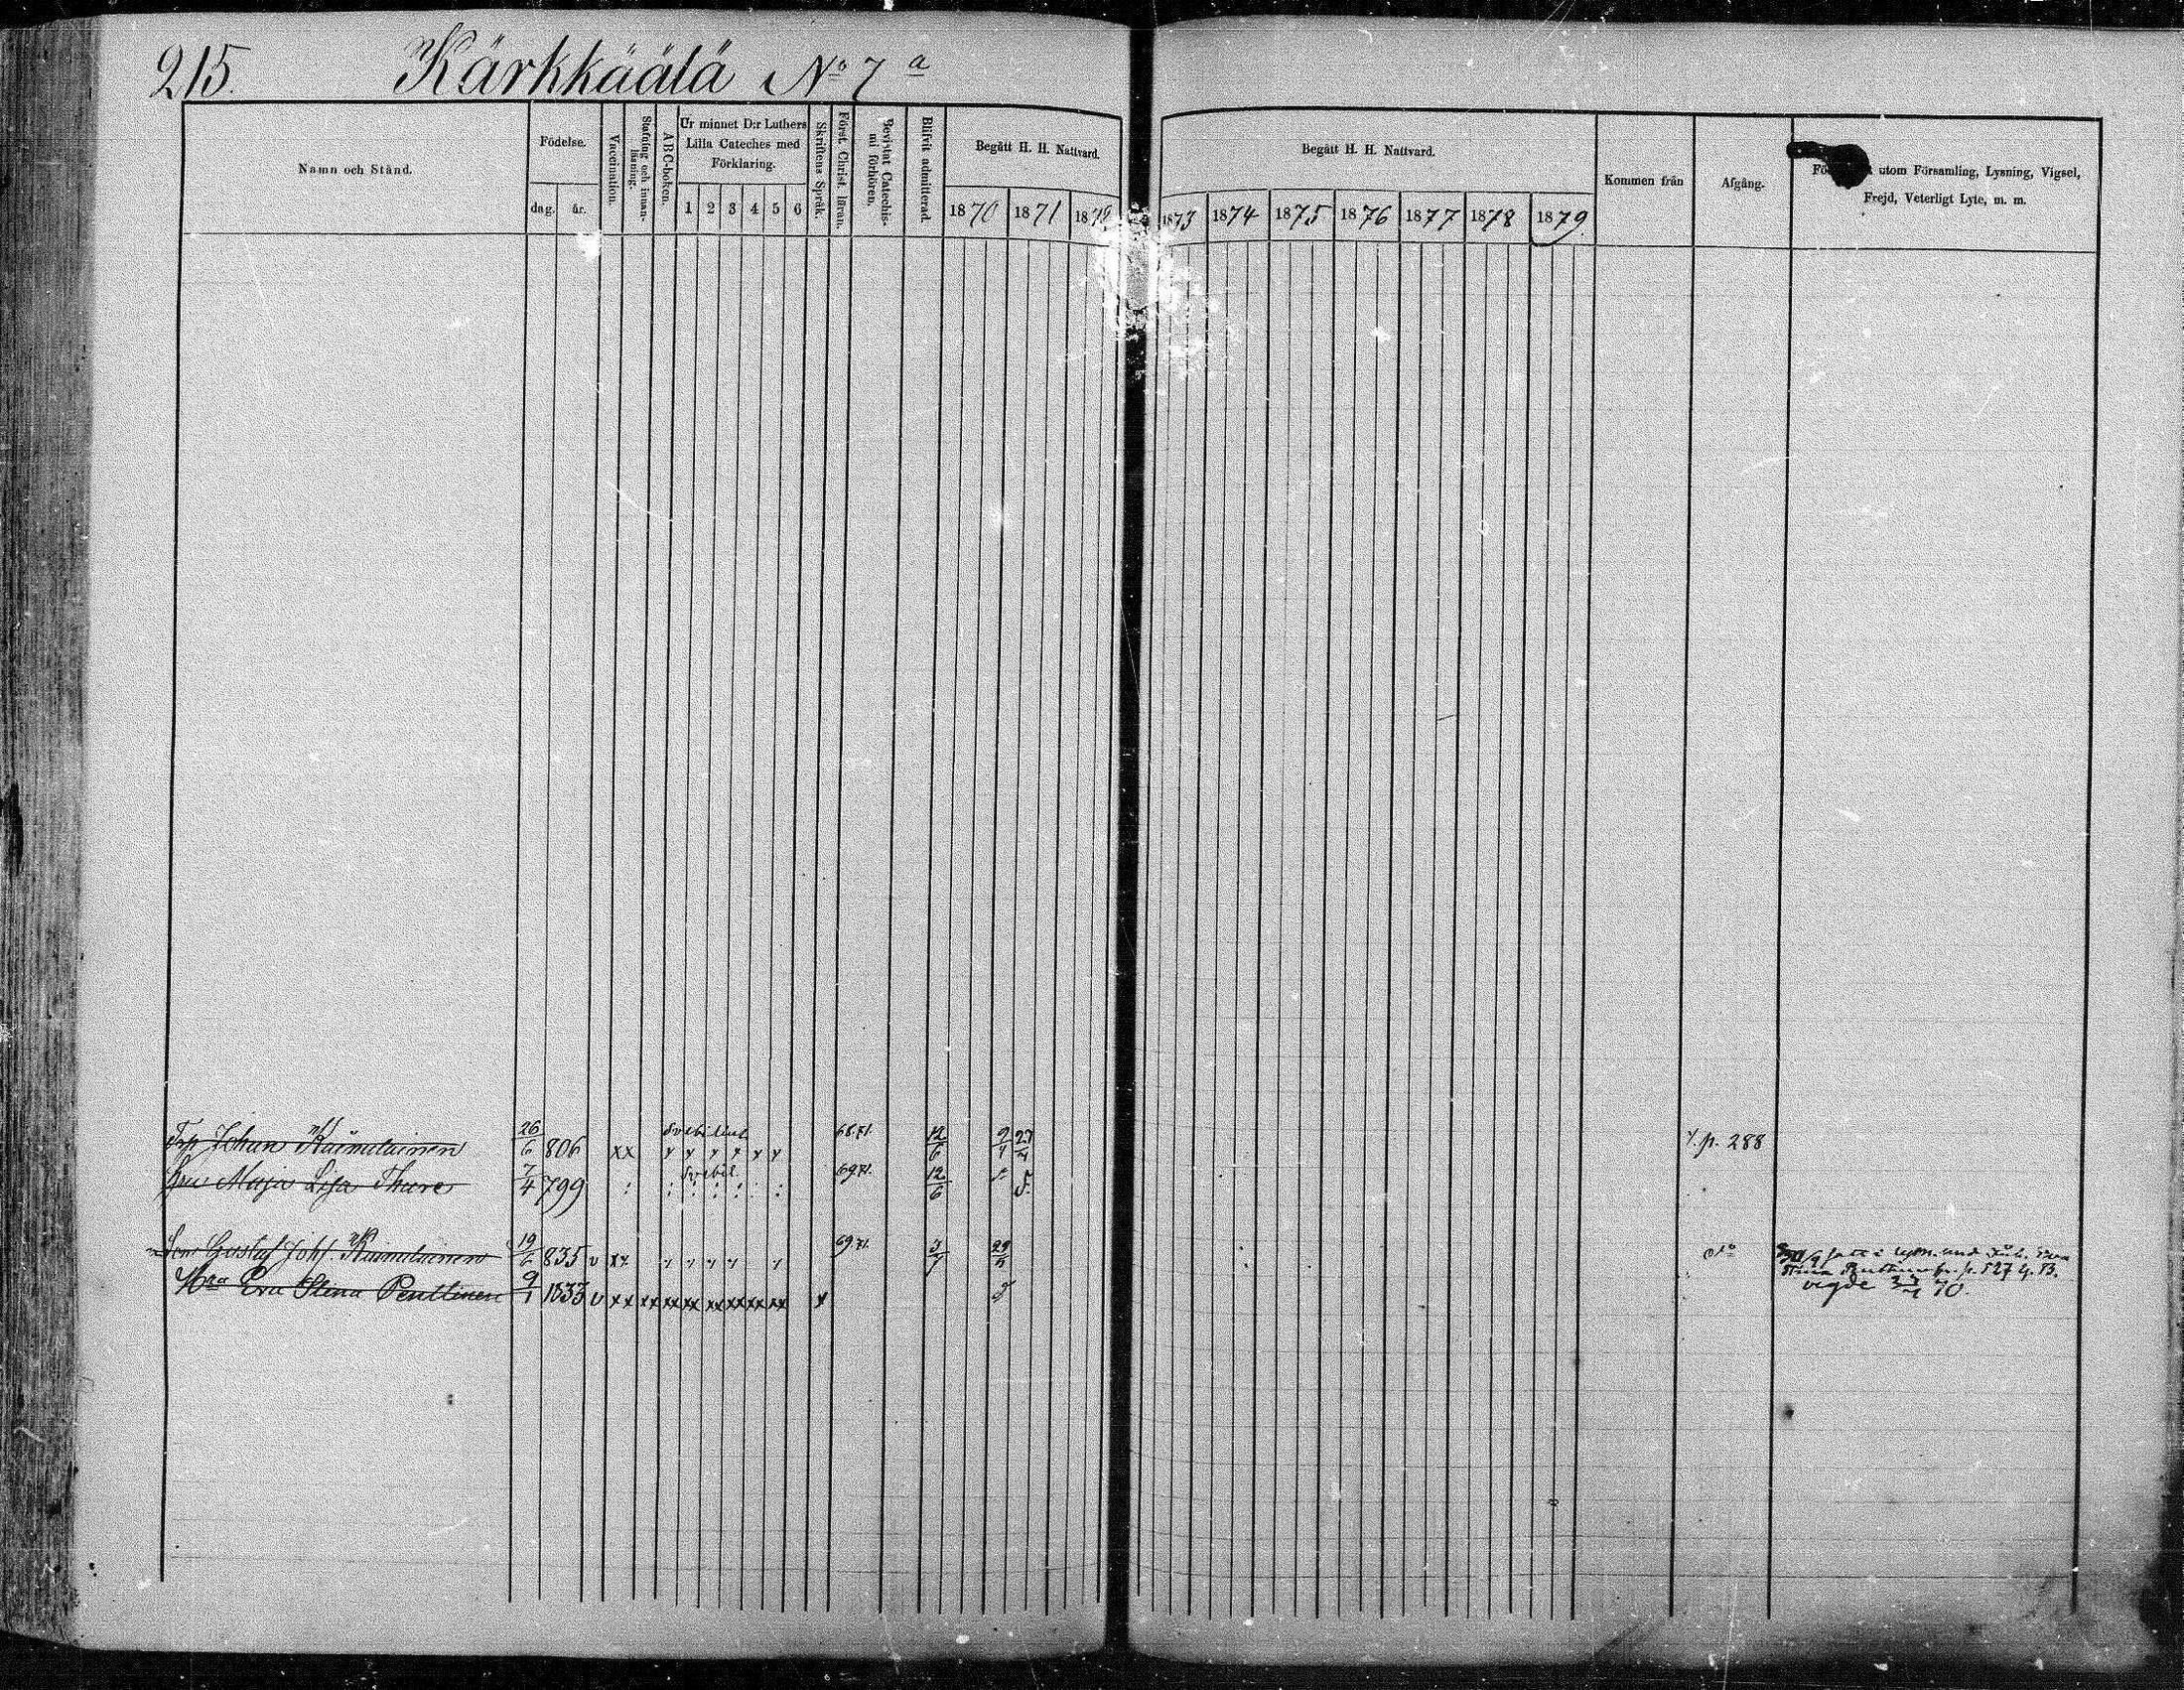 215. Kärkkäälä No 7 a
Namn och Stånd.
Födelse.
dag. år.
Vaccination.
Stafning och innan-läsning.
ABC-boken.
Ur minnet D:r Luthers
Lilla Cateches med
Förklaring.
1 2 3 4 5 6
Skriftens Språk.
Först. Christ. läran.
Bevistat Catechis-mi förhören.
Blifvit admitterad.
Begått H. H. Nattvard.
1870 1871 1872
Begått H. H. Nattvard.
1873 1874 1875 1876 1877 1878 1879
Kommen från
Afgång.
utom Församling, Lysning, Vigsel,
Frejd, Veterligt Lyte, m. m.
Johan 26/6 806 xx 68.71. 12/6 p. 288
Maja Lisa Thure 7/4 799 69.71. 12/6
Gustaf Joh. 19/6 835 v 69.71. do
Eva Stina Penttinen 9/1 1833 v xx xx xx xx xx xx xx x
p. 527
vigde 70.